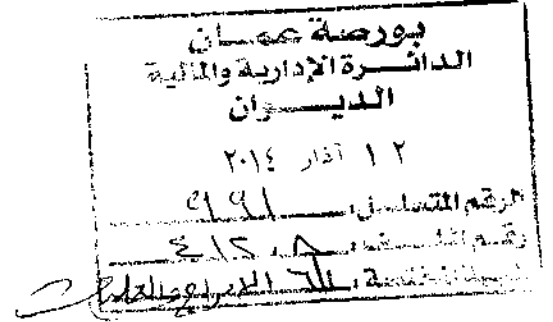 بورصة عمان
الدائرة الإدارية والمالية
الديوان
١٢ آذار ٢٠١٤
الرقم المتسلسل:
رقم الملف: ٤١٢٠٨
الجهة المختصة: